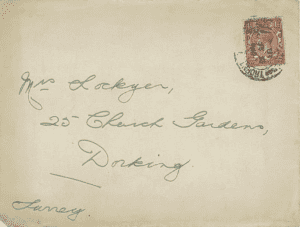 Mrs Lockyer,
25 Church Gardens,
Dorking.
Surrey.